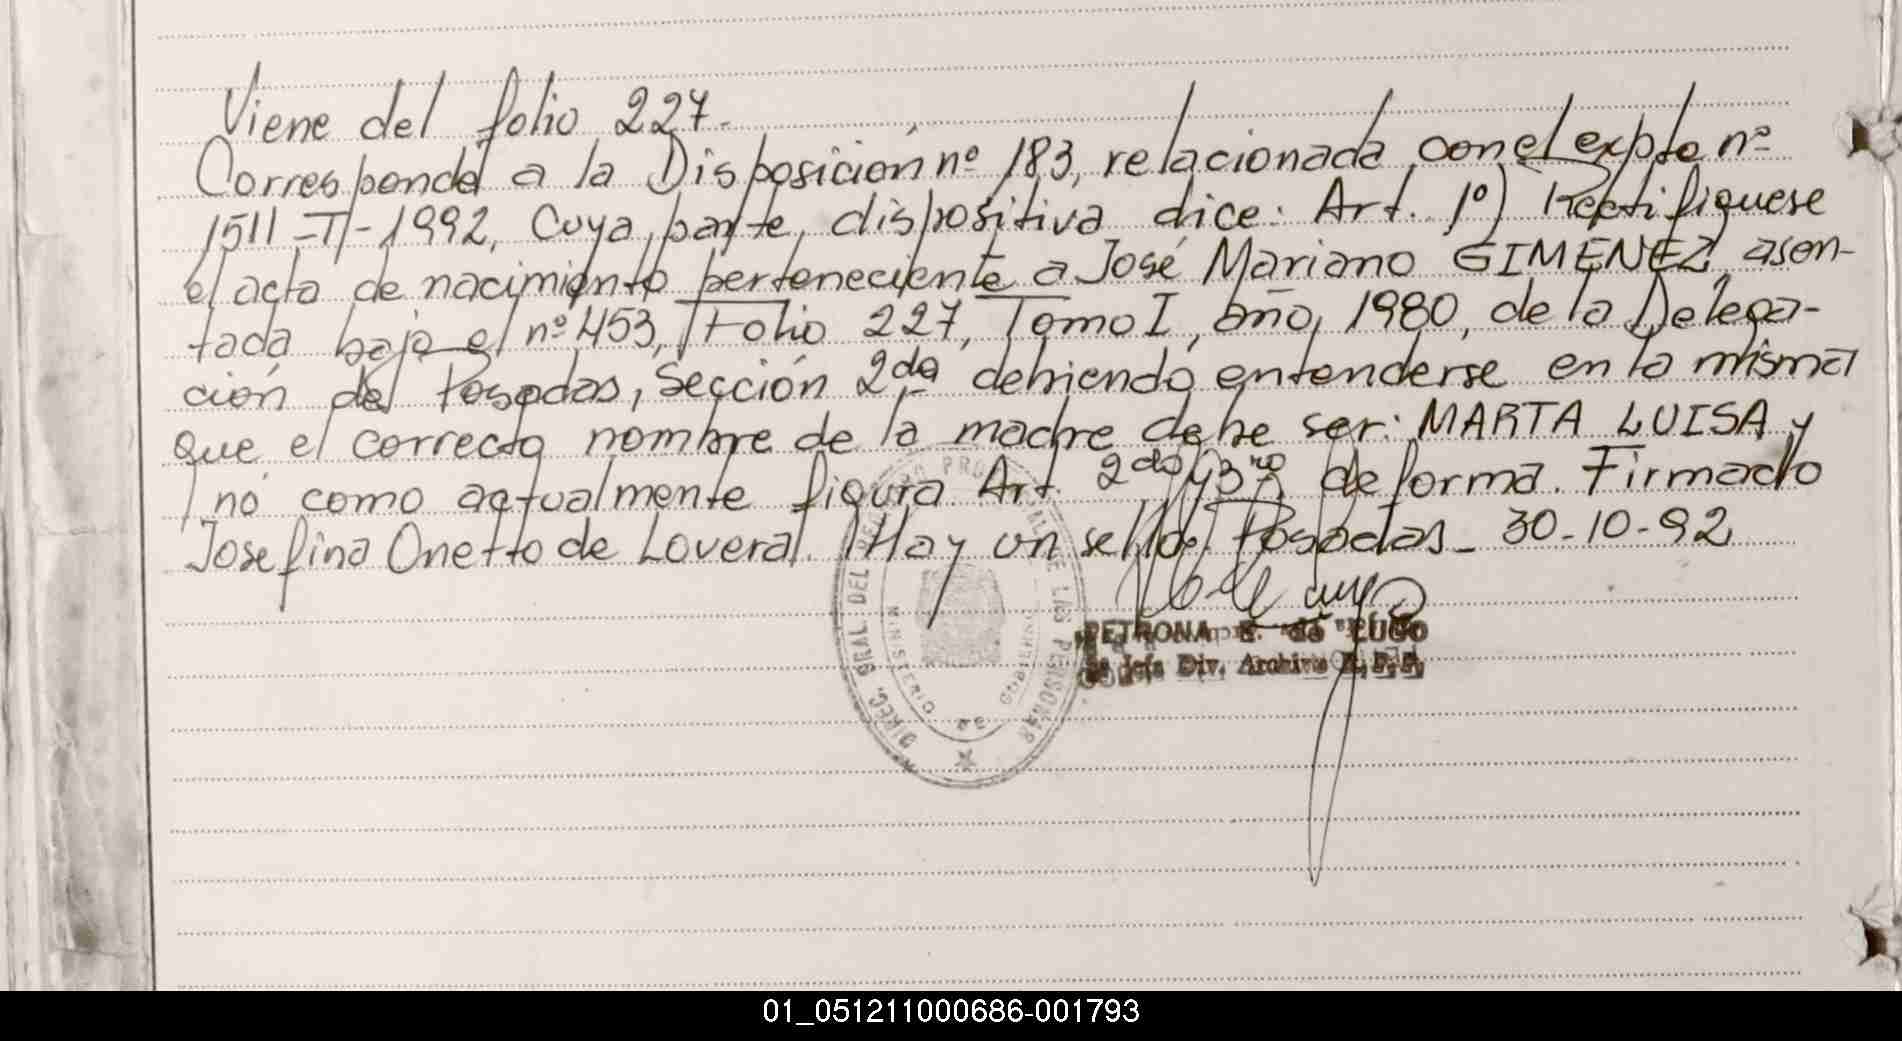 Viene del folio 227.
Corresponde a la Disposición nº 183, relacionada con el expte nº
1511-T-1992, Cuya parte dispositiva dice: Art. 1º) Rectifiquese
el acta de nacimiento perteneciente a José Mariano GIMENEZ, asen-
tada bajo el nº 453, Folio 227, Tomo I, año, 1980, de la Delega-
ción de Posadas, Sección 2da debiendo entenderse en la misma
que el correcto nombre de la madre debe ser: MARTA LUISA y
no como actualmente figura Art. 2do y 3ro de forma. Firmado
Josefina Onetto de Loveral. Hay un sello. Posadas - 30-10-92
DIREC. GRAL DEL PROVINCIAL DE LAS PERSONAS
MINISTERIO DE GOBIERNO
PETRONA E. de LUGO
Jefe Div. Archivo R.P.P.
01_051211000686-001793